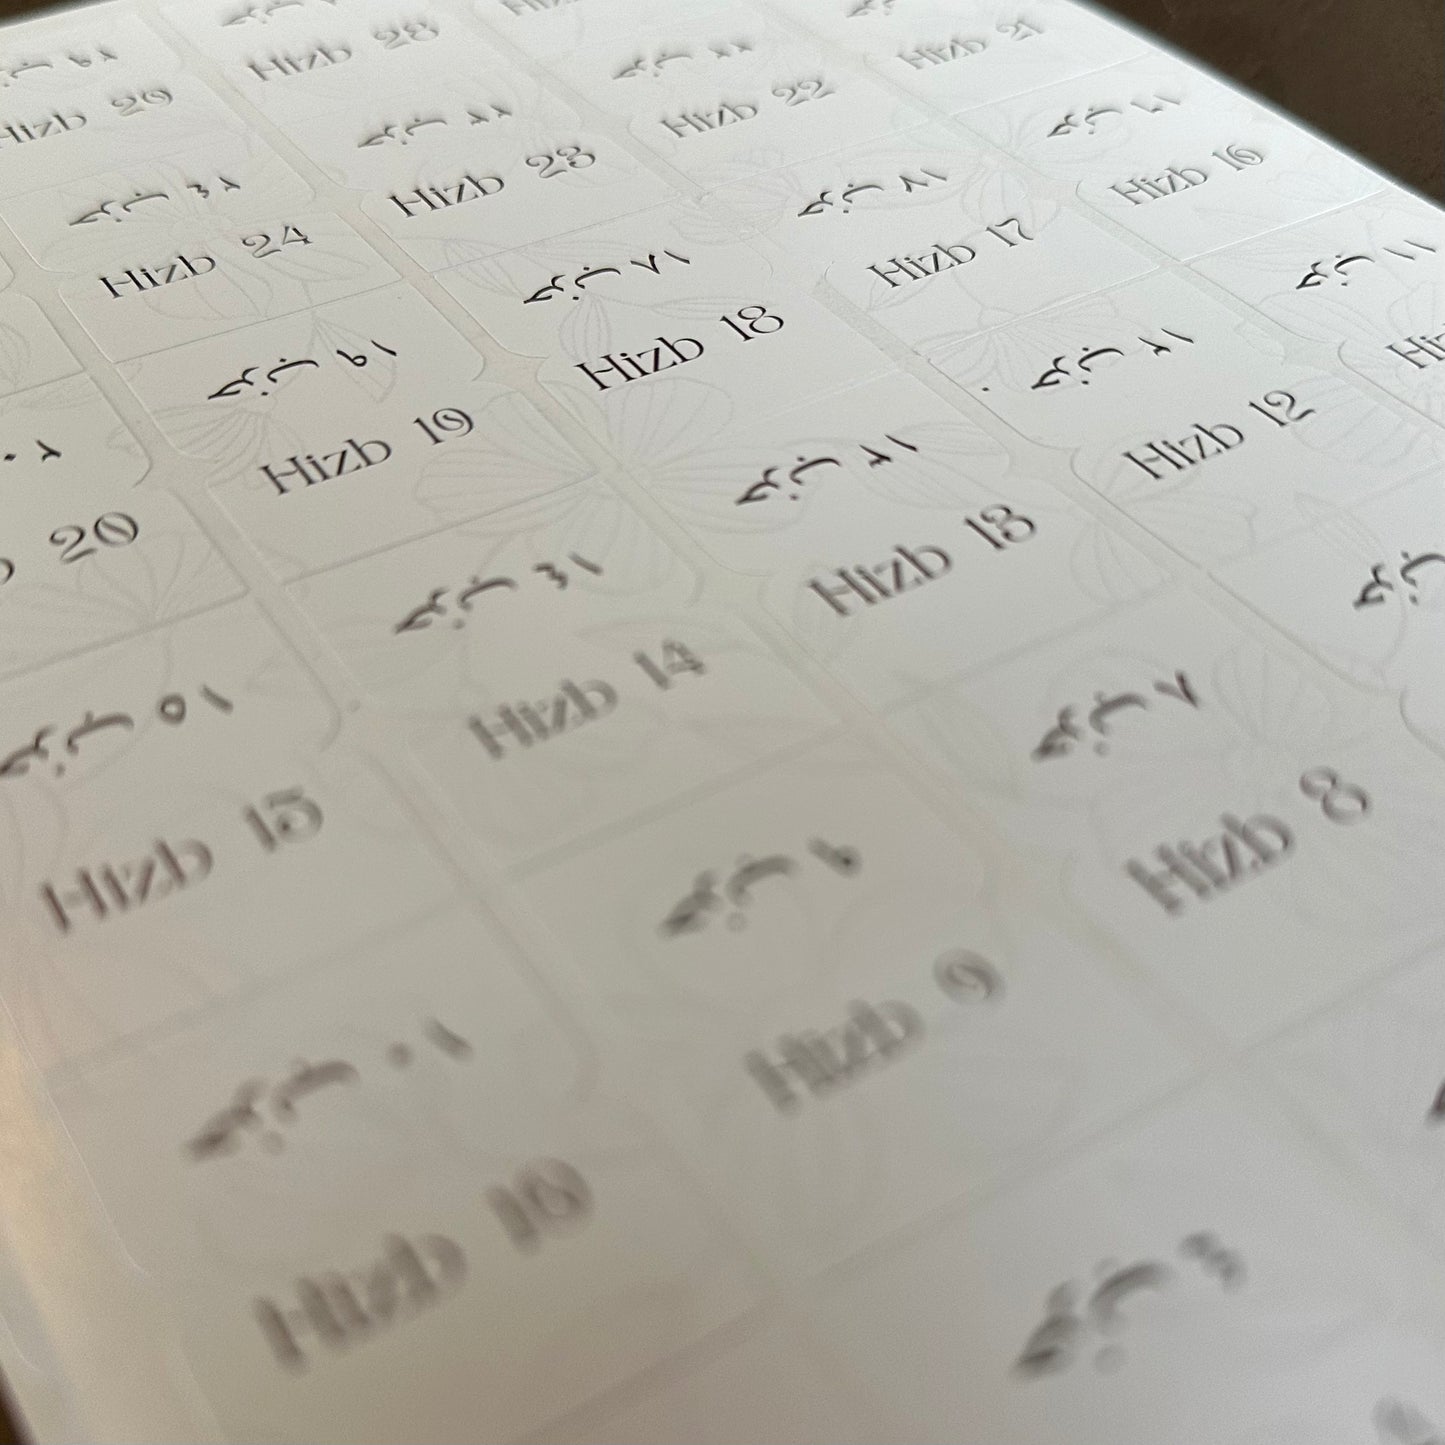 حزب ٢٩
Hizb 29
Hizb 28
حزب ٢٤
Hizb 24
حزب ٢٣
Hizb 23
حزب ٢٢
Hizb 22
Hizb 21
٢٠
20
حزب ١٩
Hizb 19
حزب ١٨
Hizb 18
حزب ١٧
Hizb 17
حزب ١٦
Hizb 16
حزب ١٥
Hizb 15
حزب ١٤
Hizb 14
حزب ١٣
Hizb 13
حزب ١٢
Hizb 12
حزب ١١
حزب ١٠
Hizb 10
حزب ٩
Hizb 9
حزب ٨
Hizb 8
حزب ٤